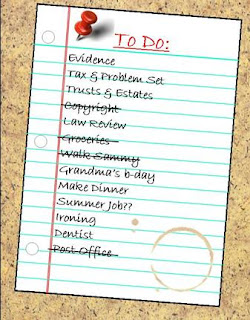 To Do:
Evidence
Tax & Problem Set
Trusts & Estates
Copyright
Law Review
Groceries
Walk Sammy
Grandma's b-day
Make Dinner
Summer Job??
Ironing
Dentist
Post Office